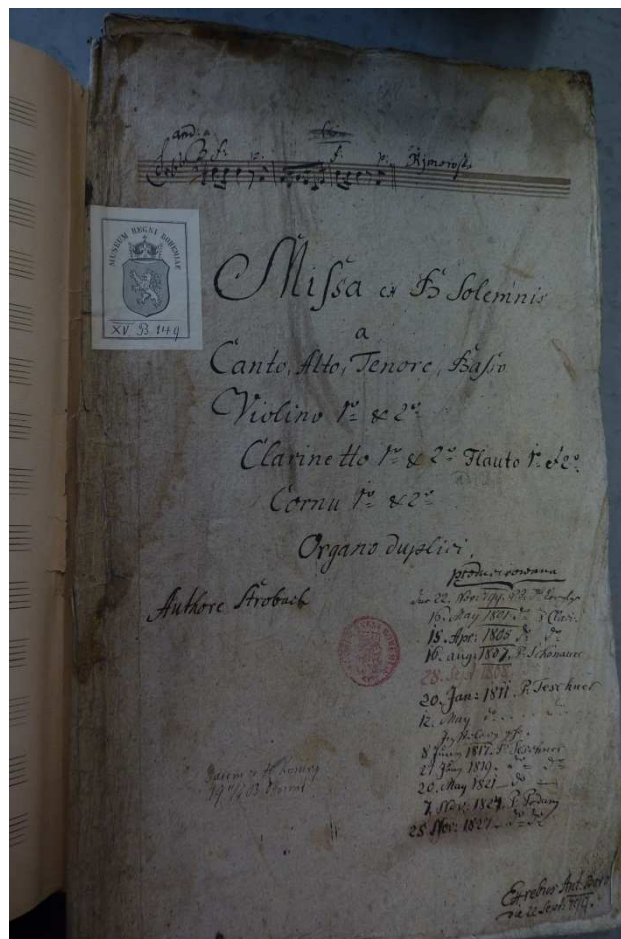 and:
f. p. f. p.
MUSEUM REGNI BOHEMIAE
XV B. 149
Missa ex B Solemnis
a
Canto, Alto, Tenore, Basso
Violino 1º & 2º
Clarinetto 1º & 2º Flauto 1º & 2º
Cornu 1º & 2º
Organo duplici.
Authore Strobach
producirowana
22. Nov: 799.
15. May 1801. dº
15. Apr: 1805 dº dº
16. aug: 1807. P. Schönauer
28. Sept 1808
20. Jan: 1811 P. Teschner
12. May dº
8 Juny 1817. P. Teschner
27 Juny 1819. dº dº
20. May 1821 dº
7. Nov: 1824. P.
25 Nov: 1827 dº dº
Ex rebus Ant.
die 22 Sept: